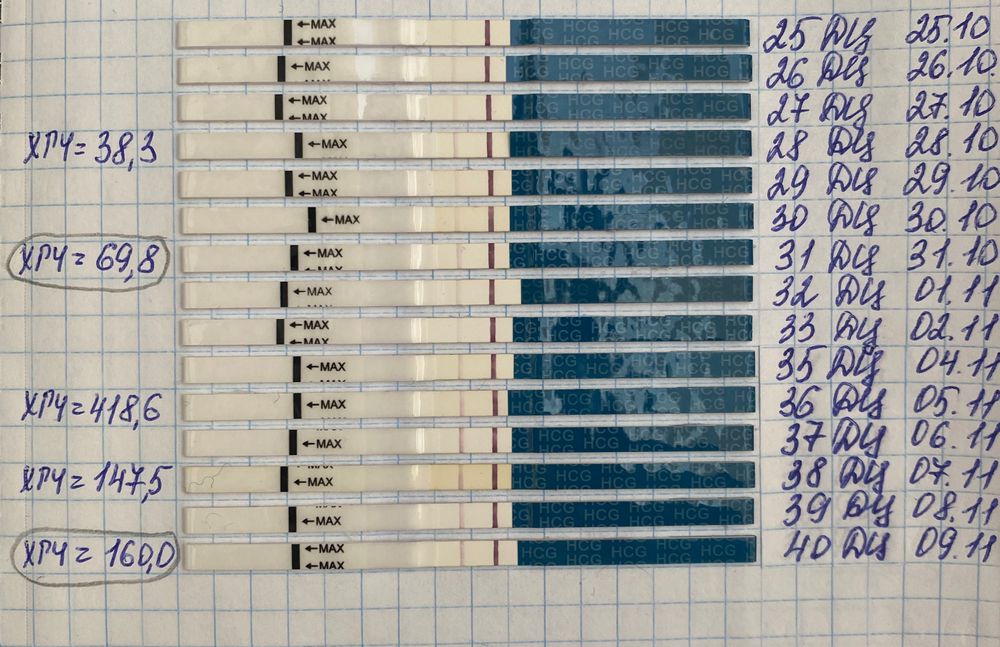 ←MAX
←MAX
HCG HCG HCG HCG
HCG HCG HCG HCG
25 ДЦ 25.10
←MAX
HCG HCG HCG HCG
HCG HCG HCG
26 ДЦ 26.10.
←MAX
←MAX
HCG HCG HCG HCG
27 ДЦ 27.10
ХГЧ = 38,3
←MAX
HCG HCG HCG
28 ДЦ 28.10
←MAX
←MAX
HCG HCG HCG HCG
29 ДЦ 29.10
←MAX
30 ДЦ 30.10
ХГЧ = 69,8
←MAX
HCG HCG HCG HCG
31 ДЦ 31.10
←MAX
32 ДЦ 01.11
←MAX
←MAX
HCG HCG HCG
33 ДЦ 02.11
←MAX
35 ДЦ 04.11
ХГЧ = 418,6
←MAX
HCG HCG HCG
36 ДЦ 05.11
←MAX
HCG HCG HCG HCG
37 ДЦ 06.11
ХГЧ = 147,5
←MAX
HCG HCG HCG HCG
38 ДЦ 07.11
←MAX
HCG HCG HCG HCG
39 ДЦ 08.11
ХГЧ = 160,0
←MAX
←MAX
HCG HCG HCG HCG
HCG HCG HCG HCG
40 ДЦ 09.11